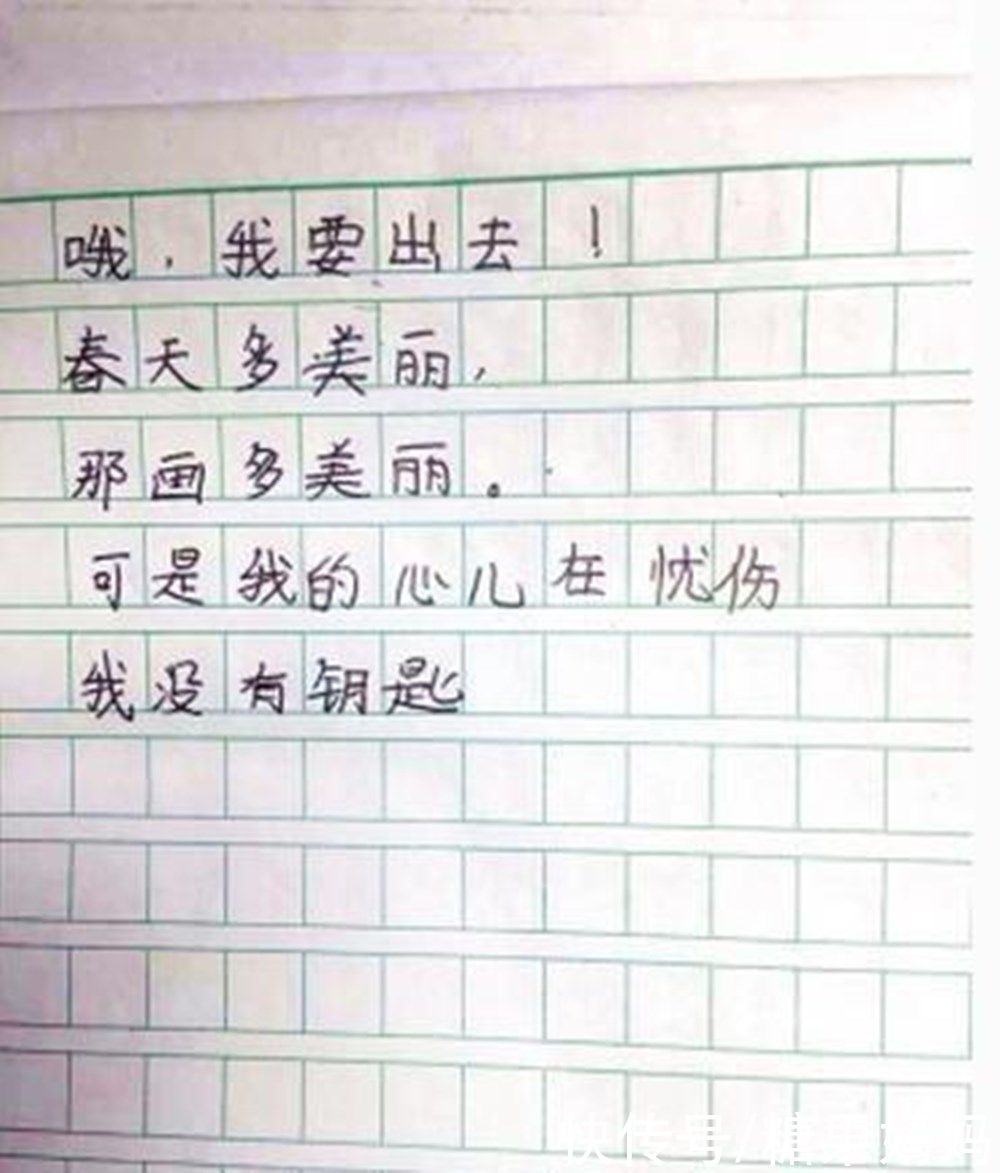 哦，我要出去！
春天多美丽，
那画多美丽。
可是我的心儿在忧伤
我没有钥匙
快传号/糖果妈妈